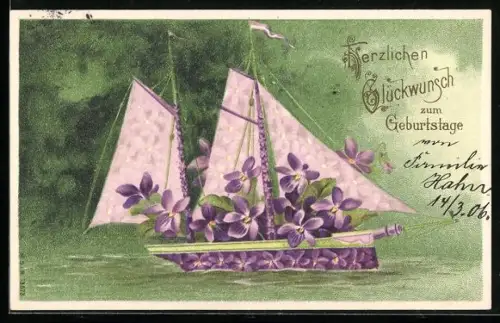 Herzlichen
Glückwunsch
zum
Geburtstage
von
Familie
Hahn
14/3.06.